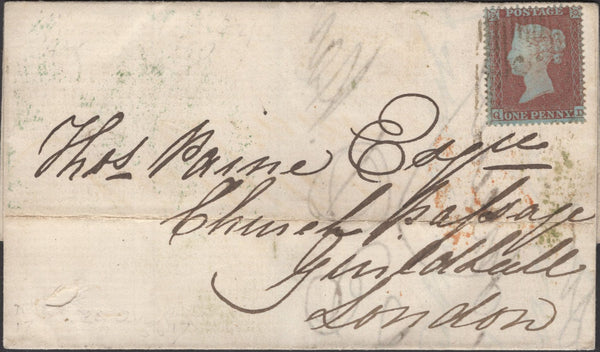 POSTAGE
ONE PENNY
Thos Paine Esqre
Church Passage
Guildhall
London